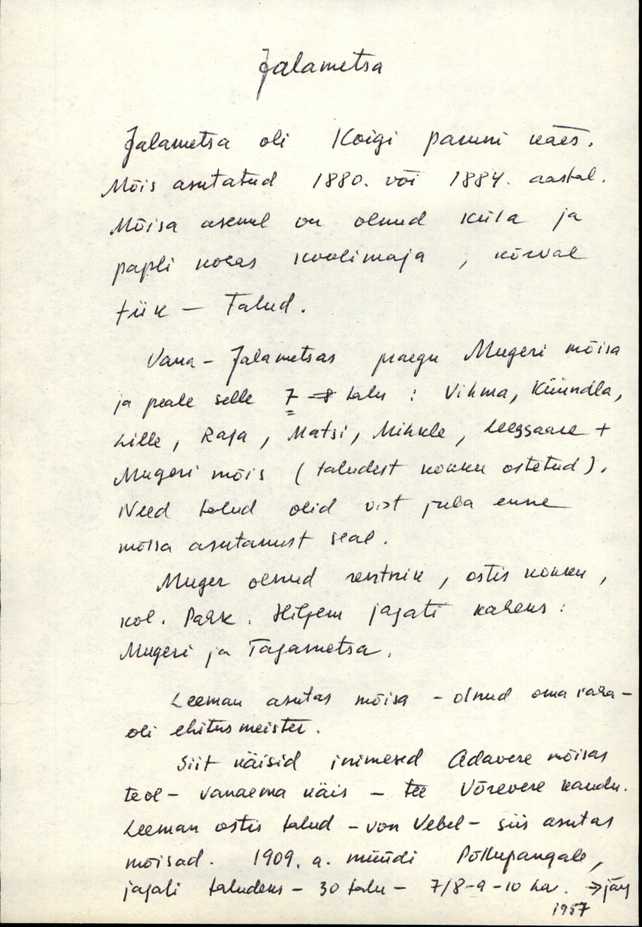 Jalametsa
Jalametsa oli Koigi paruni käes.
Mõis asutatud 1880. või 1884. aastal.
Mõisa asemel on olnud küla ja
papli kohas koolimaja, kõrval
tiik — Talud.
Vana-Jalametsas praegu Mugeri mõisa
ja peale selle 7 8 talu : Vihma, Küündla,
Lille, Raja, Matsi, Mihkle, Leegsaare +
Mugeri mõis (taludest kokku ostetud).
Need talud olid vist juba enne
mõisa asutamist seal.
Muger olnud rentnik, ostis kokku,
kol. Park. Hiljem jagati kaheks :
Mugeri ja Tagametsa.
Leeman asutas mõisa - olnud oma raha -
oli ehitusmeister.
Siit käisid inimesed Adavere mõisas
teol - vanaema käis - tee Võrevere kaudu.
Leeman ostis talud - von Vebel - siis asutas
mõisad. 1909. a. müüdi Põllupangale,
jagati taludeks - 30 talu - 7/8-9-10 ha. → järg
1957